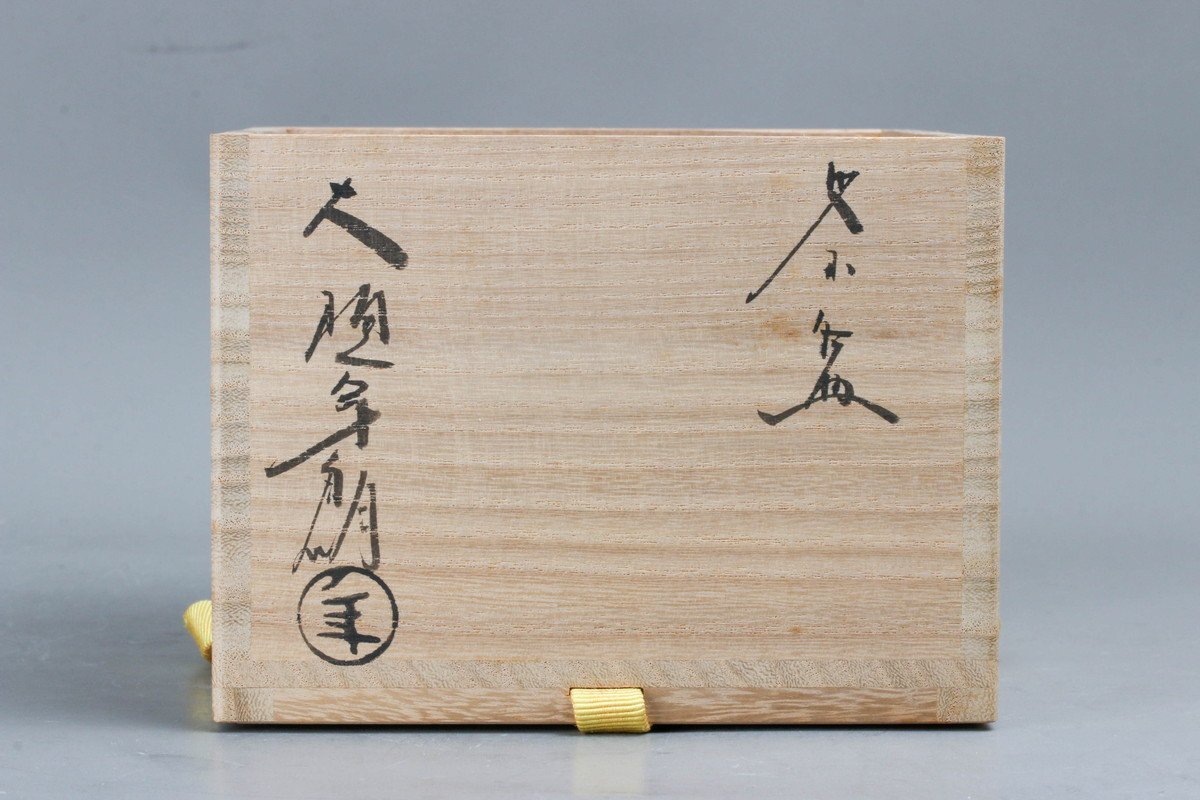 茶盌
大樋年朗
年